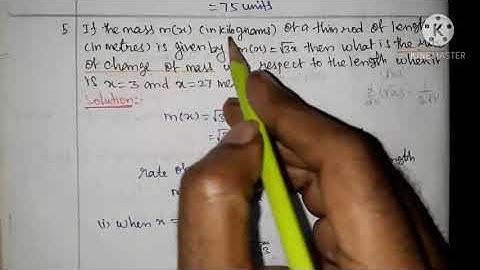 = 75 units
5. If the mass m(x) (in kilograms) of a thin rod of length
(in metres) is given by m(x) = √3x then what is the
of change of mass with respect to the length when it
is x=3 and x=27
Solution:-
m(x) = √3
= √3
rate of
when x =
d/dx (√x) = 1/2√x
KINEMASTER